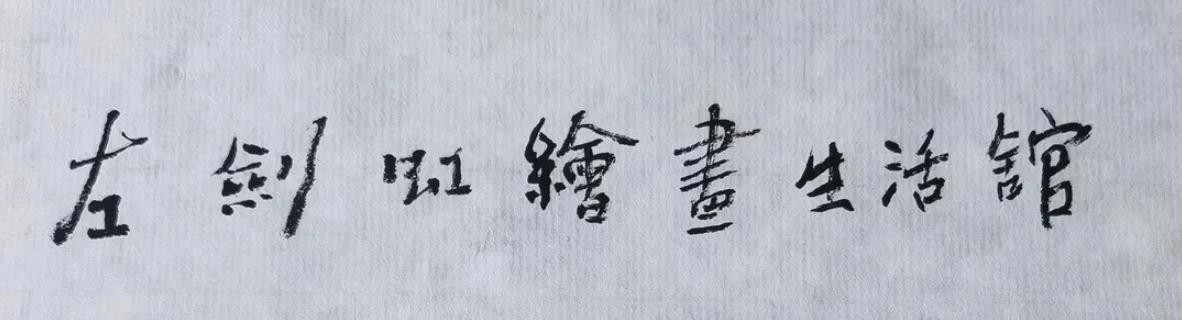 左劍虹繪畫生活舘